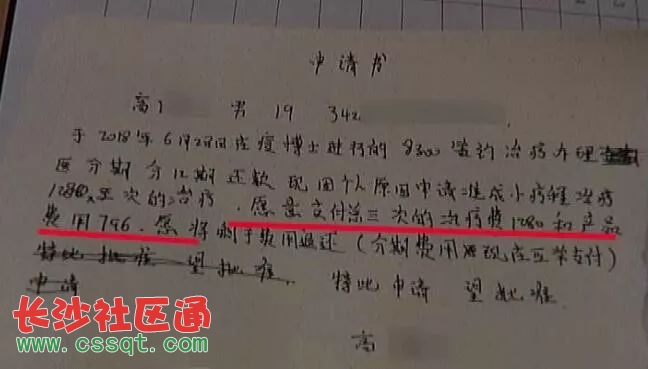 申请书
高 男 19 342
于2018年6月2日在痘博士进行的8300签约治疗办理
医分期 分12期 还款 现因个人原因申请准成小疗程治疗
1280 三次的治疗 .愿意支付前三次的治疗费1280和产品
费用796.愿将剩于费用退还(分期费用 现在正常支付)
特此批准 望批准.
申请 特此申请 望批准
高
长沙社区通
www.cssqt.com